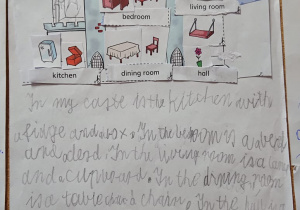 bedroom
living room
kitchen
dining room
hall
In my castle is the kitchen with
a fridge and a box. In the bedroom is a bed
and a In the living room is a
and a cupboard. In the dining room
is a table and a chair. In the